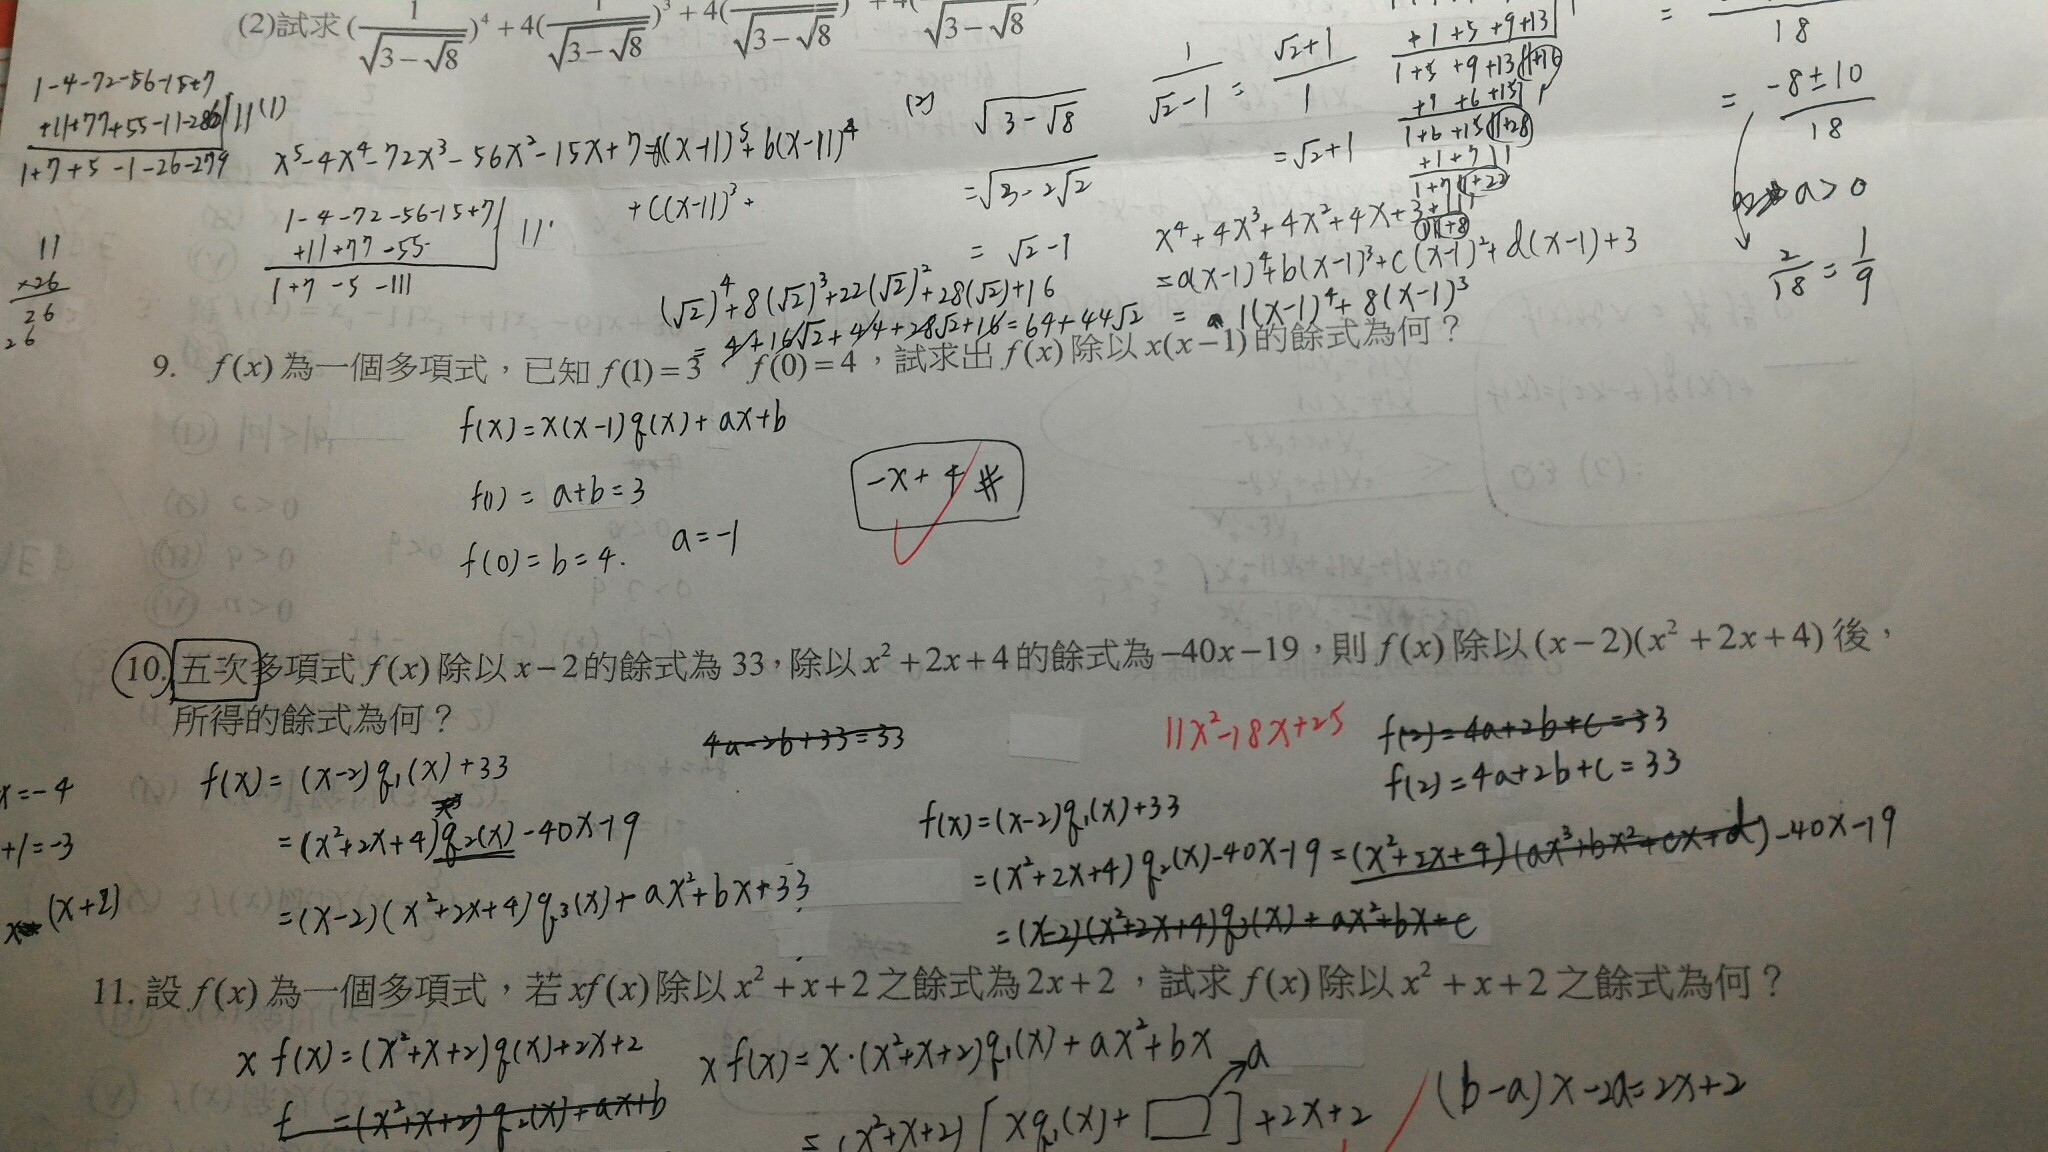 (2)試求 (1/√(3−√8))⁴ + 4(1/√(3−√8))³ + 4(
1-4-72-56-15+7
+11+77+55-11-286 | 11 (1)
1+7+5-1-26-279
x⁵-4x⁴-72x³-56x²-15x+7=a(x-11)⁵+b(x-11)⁴
+c(x-11)³+
1-4-72-56-15+7 | 11
+11+77-55
1+7-5-111
11
×26
26
26
(2) √(3-√8)
=√(3-2√2)
=√2-1
1/(√2-1) = (√2+1)/1
=√2+1
+1+5+9+13
1+5+9+13+16
+1+6+15
1+6+15+28
+1+7
1+7+22
+1
1+8
x⁴+4x³+4x²+4x+3
=a(x-1)⁴+b(x-1)³+c(x-1)²+d(x-1)+3
= 1(x-1)⁴+8(x-1)³
(√2)⁴+8(√2)³+22(√2)²+28(√2)+16
= 4+16√2+44+28√2+16=64+44√2
=
18
= (-8±10)/18
a>0
2/18=1/9
9. f(x)為一個多項式，已知 f(1)=3 f(0)=4，試求出 f(x)除以 x(x−1)的餘式為何？
f(x)=x(x-1)q(x)+ax+b
f(1)=a+b=3
f(0)=b=4.
a=-1
-x+4 #
10. 五次多項式 f(x)除以 x−2的餘式為 33，除以 x²+2x+4的餘式為−40x−19，則 f(x)除以(x−2)(x²+2x+4)後，
所得的餘式為何？
4a-2b+33=33
11x²-18x+25
f(2)=4a+2b+c=33
f(2)=4a+2b+c=33
x=-4
+1=-3
(x+2)
f(x)=(x-2)q₁(x)+33
=(x²+2x+4)q₂(x)-40x-19
=(x-2)(x²+2x+4)q₃(x)+ax²+bx+33
f(x)=(x-2)q₁(x)+33
=(x²+2x+4)q₂(x)-40x-19=(x²+2x+4)(ax³+bx²+cx+d)-40x-19
=(x-2)(x²+2x+4)q₃(x)+ax²+bx+c
11. 設 f(x)為一個多項式，若 xf(x)除以 x²+x+2之餘式為2x+2，試求 f(x)除以 x²+x+2之餘式為何？
x f(x)=(x²+x+2)q(x)+2x+2
f =(x²+x+2)q₂(x)+ax+b
x f(x)=x·(x²+x+2)q₁(x)+ax²+bx
=(x²+x+2)[xq₁(x)+□]+2x+2
a
(b-a)x-2a=2x+2